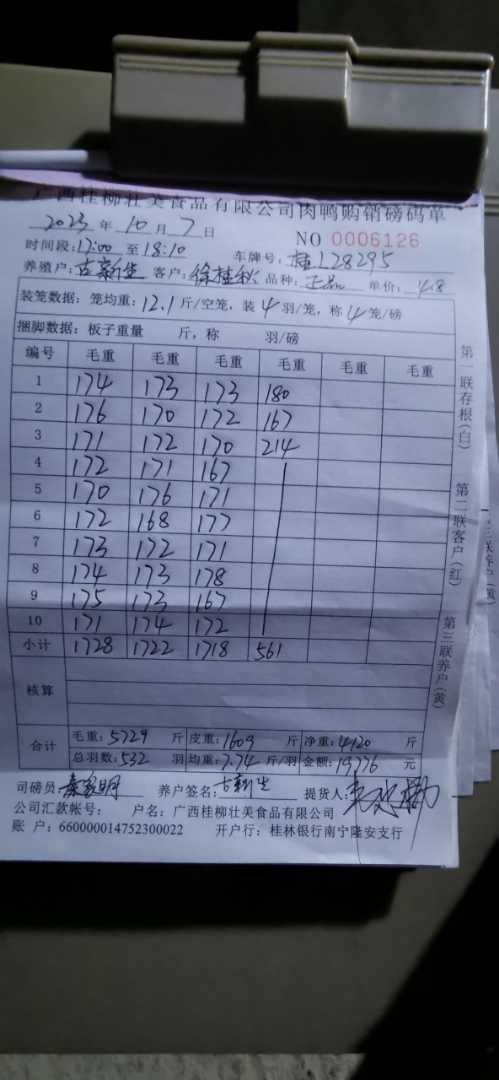 广西桂柳壮美食品有限公司肉鸭购销磅码单
2023 年 10 月 7 日
NO 0006126
时间段:17:00 至 18:10 车牌号:桂L28295
养殖户:古新生 客户:徐桂秋 品种:正品 单价:4.8
装笼数据:笼均重:12.1 斤/空笼,装 4 羽/笼,称 4 笼/磅
捆脚数据:板子重量 斤,称 羽/磅
编号 毛重 毛重 毛重 毛重 毛重 毛重
1 174 173 173 180
2 176 170 172 167
3 171 172 170 214
4 172 171 167
5 170 176 171
6 172 168 177
7 173 172 171
8 174 173 178
9 175 173 167
10 171 174 172
小计 1728 1722 1718 561
核算
合计 毛重:5729 斤 皮重:1609 斤 净重:4120 斤
总羽数:532 羽 均重:7.74 斤/羽 金额:19776 元
司磅员: 养户签名:古新生 提货人:
公司汇款帐号: 户名:广西桂柳壮美食品有限公司
账 户:660000014752300022 开户行:桂林银行南宁隆安支行
第一联存根(白)
第二联客户(红)
第三联养户(黄)